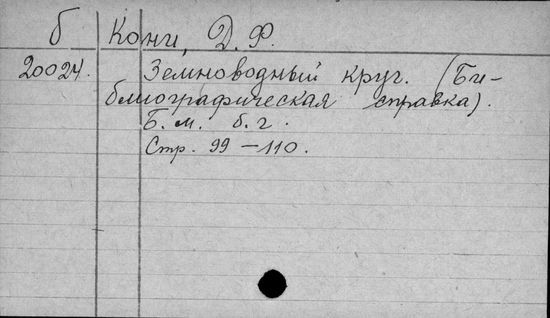 б Кони, Д. Ф.
20024. Земноводный круг. (Би-
блиографическая справка).
Б. м. б. г.
Стр. 99 — 110.